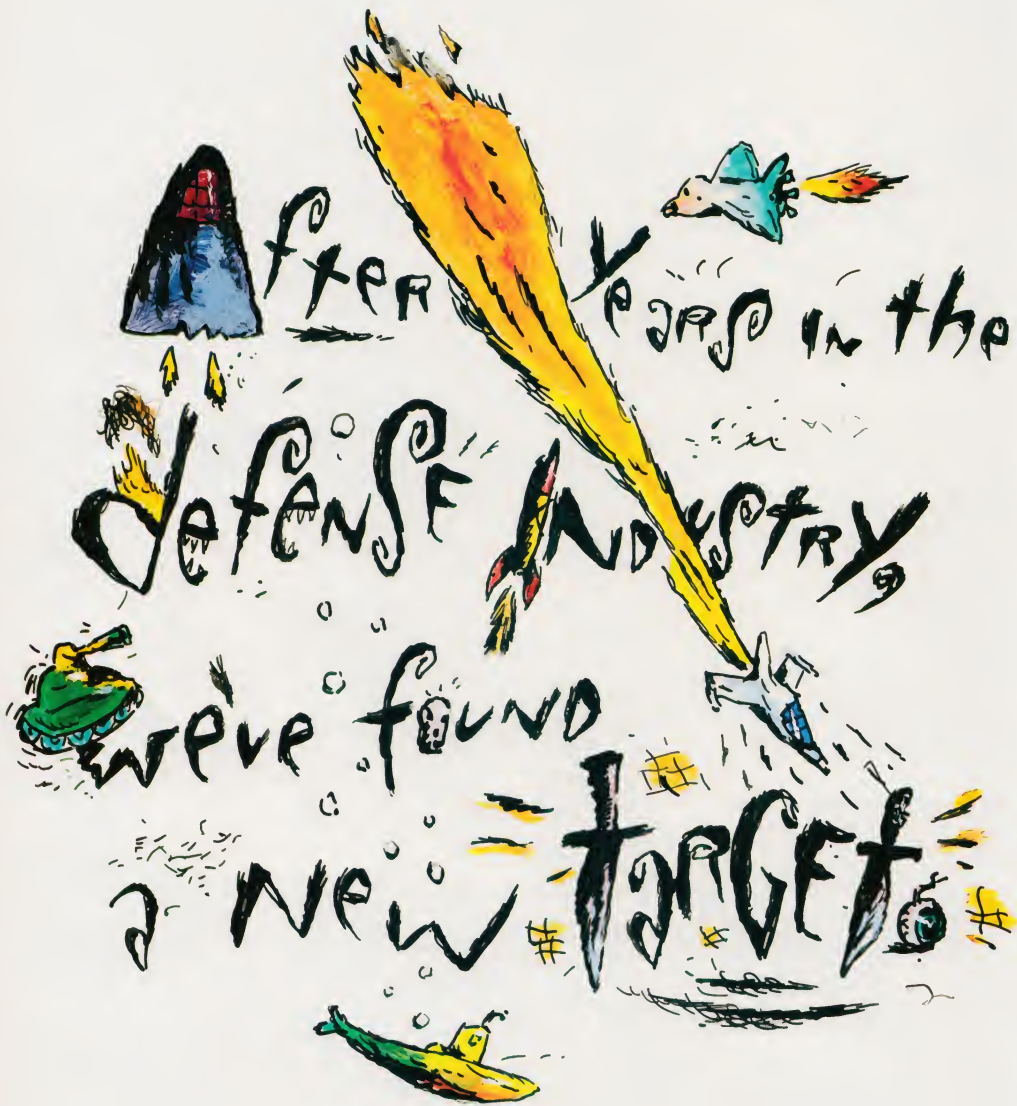 After years in the
defense industry,
we've found
a new target.